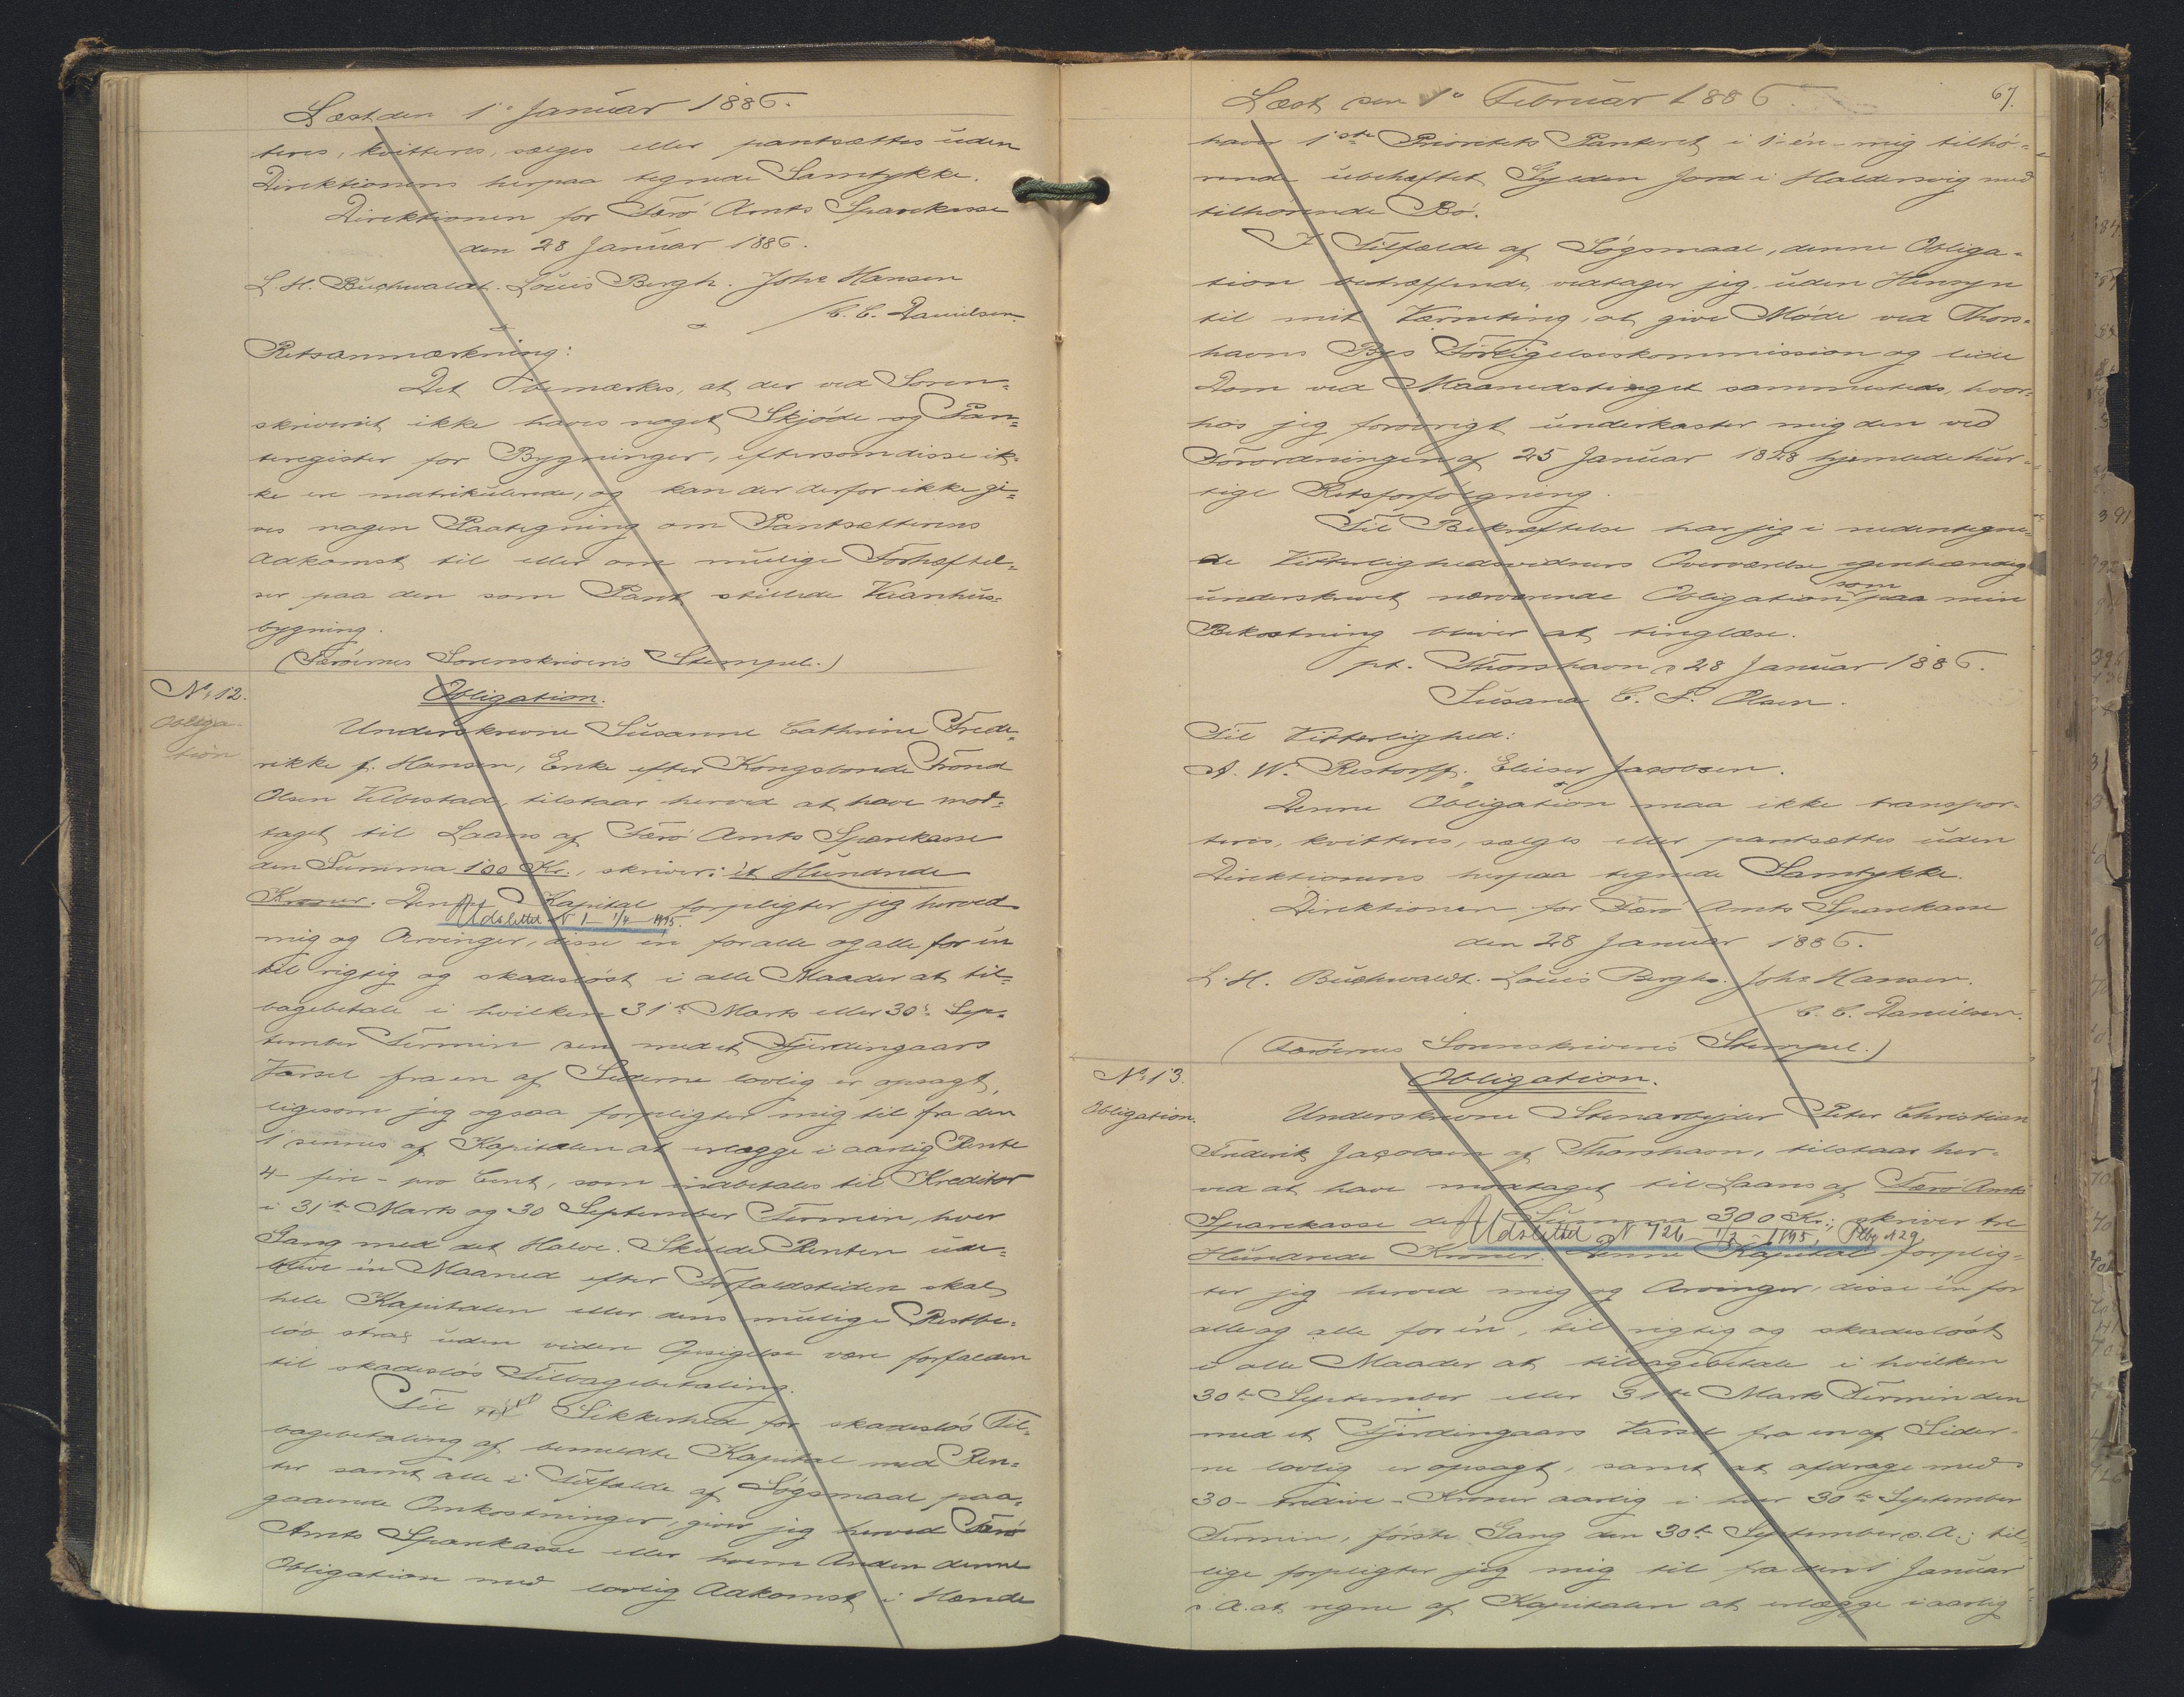 Læst den 1ᵒ Januar 1886.
teres, kvitteres, sælges eller pantsættes uden
Direktionens herpaa tegnede Samtykke.
Direktionen for Færø Amts Sparekasse
den 28 Januar 1886.
L. H. Buchwaldt. Louis Bergh. Johs Hansen
/C. C. Danielsen.
Retsanmærkning:
Det bemærkes, at der ved Soren=
skriveriet ikke haves noget Skjøde og Pan=
teregister for Bygninger, eftersom disse ik=
ke ere matrikulerede, og kan der derfor ikke gi=
ves nogen Paategning om Pantsætterens
Adkomst til eller om mulige Forhæftel=
ser paa den som Pant stillede Vaanhus=
bygning.
(Færøernes Sorenskriveris Stempel.)
No 12.
Obliga-
tion
Obligation.
Underskrevne Susanne Cathrine Frede=
rikke f. Hansen, Enke efter Kongsbonde Trónd
Olsen Velbestad, tilstaar herved at have mod=
taget til Laans af Færø Amts Sparekasse
den Summa 100 Kr., skriver: ét Hundrede
Kroner. Denne Kapital forpligter jeg herved
Udslettet N 1 - 1/4 - 1895.
mig og Arvinger, disse én for alle og alle for én
til rigtig og skadesløst i alle Maader at til=
bagebetale i hvilken 31te Marts eller 30te Sep=
tember Termin den med et Fjerdingaars
Varsel fra en af Siderne lovlig er opsagt,
ligesom jeg ogsaa forpligter mig til fra den
1 dennes af Kapitalen at erlægge i aarlig Rente
4 - fire - pro Cent, som indbetales til Kreditor
i 31te Marts og 30 September Termin, hver
Gang med det Halve. Skulde Renten ude=
blive én Maaned efter Forfaldstiden skal
hele Kapitalen eller dens mulige Restbe=
løb strax uden viden Opsigelse være forfalden
til skadesløs Tilbagebetaling.
Til Sikkerhed for skadesløs Til=
bagebetaling af bemeldte Kapital med Ren=
ter samt alle i Tilfælde af Søgsmaal paa=
gaaende Omkostninger, giver jeg herved Færø
Amts Sparekasse eller hvem Anden denne
Obligation med lovlig Adkomst i Hænde
Læst den 1ᵒ Februar 1886
67.
haver 1ste Prioritets Panteret i 1 - én - mig tilhø=
rende ubehæftet Gylden Jord i Haldersvig med
tilhørende Bø.
I Tilfælde af Søgsmaal, denne Obliga=
tion betræffende, vedtager jeg, uden Hensyn
til mit Værneting, at give Møde ved Thors=
havns Byes Forligelseskommission og lide
Dom ved Maanedstinget sammesteds, hvor=
hos jeg forøvrigt underkaster mig den ved
Forordningen af 25 Januar 1828 hjemlede hur=
tige Retsforfølgning.
Til Bekræftelse har jeg i nedentegne=
de Vitterlighedsvidners Overværelse egenhændig
underskrevet nærværende Obligation som paa min
Bekostning bliver at tinglæse.
pt. Thorshavn d 28 Januar 1886.
Susana C. F. Olsen.
Til Vitterlighed:
A. W. Restorff. Elieser Jacobsen.
Denne Obligation maa ikke transpor-
teres, kvitteres, sælges eller pantsættes uden
Direktionens herpaa tegnede Samtykke.
Direktionen for Færø Amts Sparekasse
den 28 Januar 1886.
L. H. Buchwaldt. Louis Bergh. Johs Hansen.
/C. C. Danielsen.
(Færøernes Sorenskriveris Stempel.)
No 13.
Obligation.
Obligation.
Underskrevne Stenarbejder Peter Christian
Frederik Jacobsen af Thorshavn, tilstaar her=
ved at have modtaget til Laans af Færø Amts
Sparekasse den Summa 300 Kr., skriver tre
Udslettet N 726 - 1/2 - 1895,
Hundrede Kroner. Denne Kapital forplig=
ter jeg herved mig og Arvinger, disse én for
alle og alle for én, til rigtig og skadesløst
i alle Maader at tilbagebetale i hvilken
30te September eller 31te Marts Termin den
med et Fjerdingaars Varsel fra en af Sider=
ne lovlig er opsagt, samt at afdrage med
30 - tredive - Kroner aarlig i hver 30te September
Termin, første Gang den 30te September d. A.; til=
lige forpligter jeg mig til fra den 1 Januar
d. A. at regne af Kapitalen at erlægge i aarlig